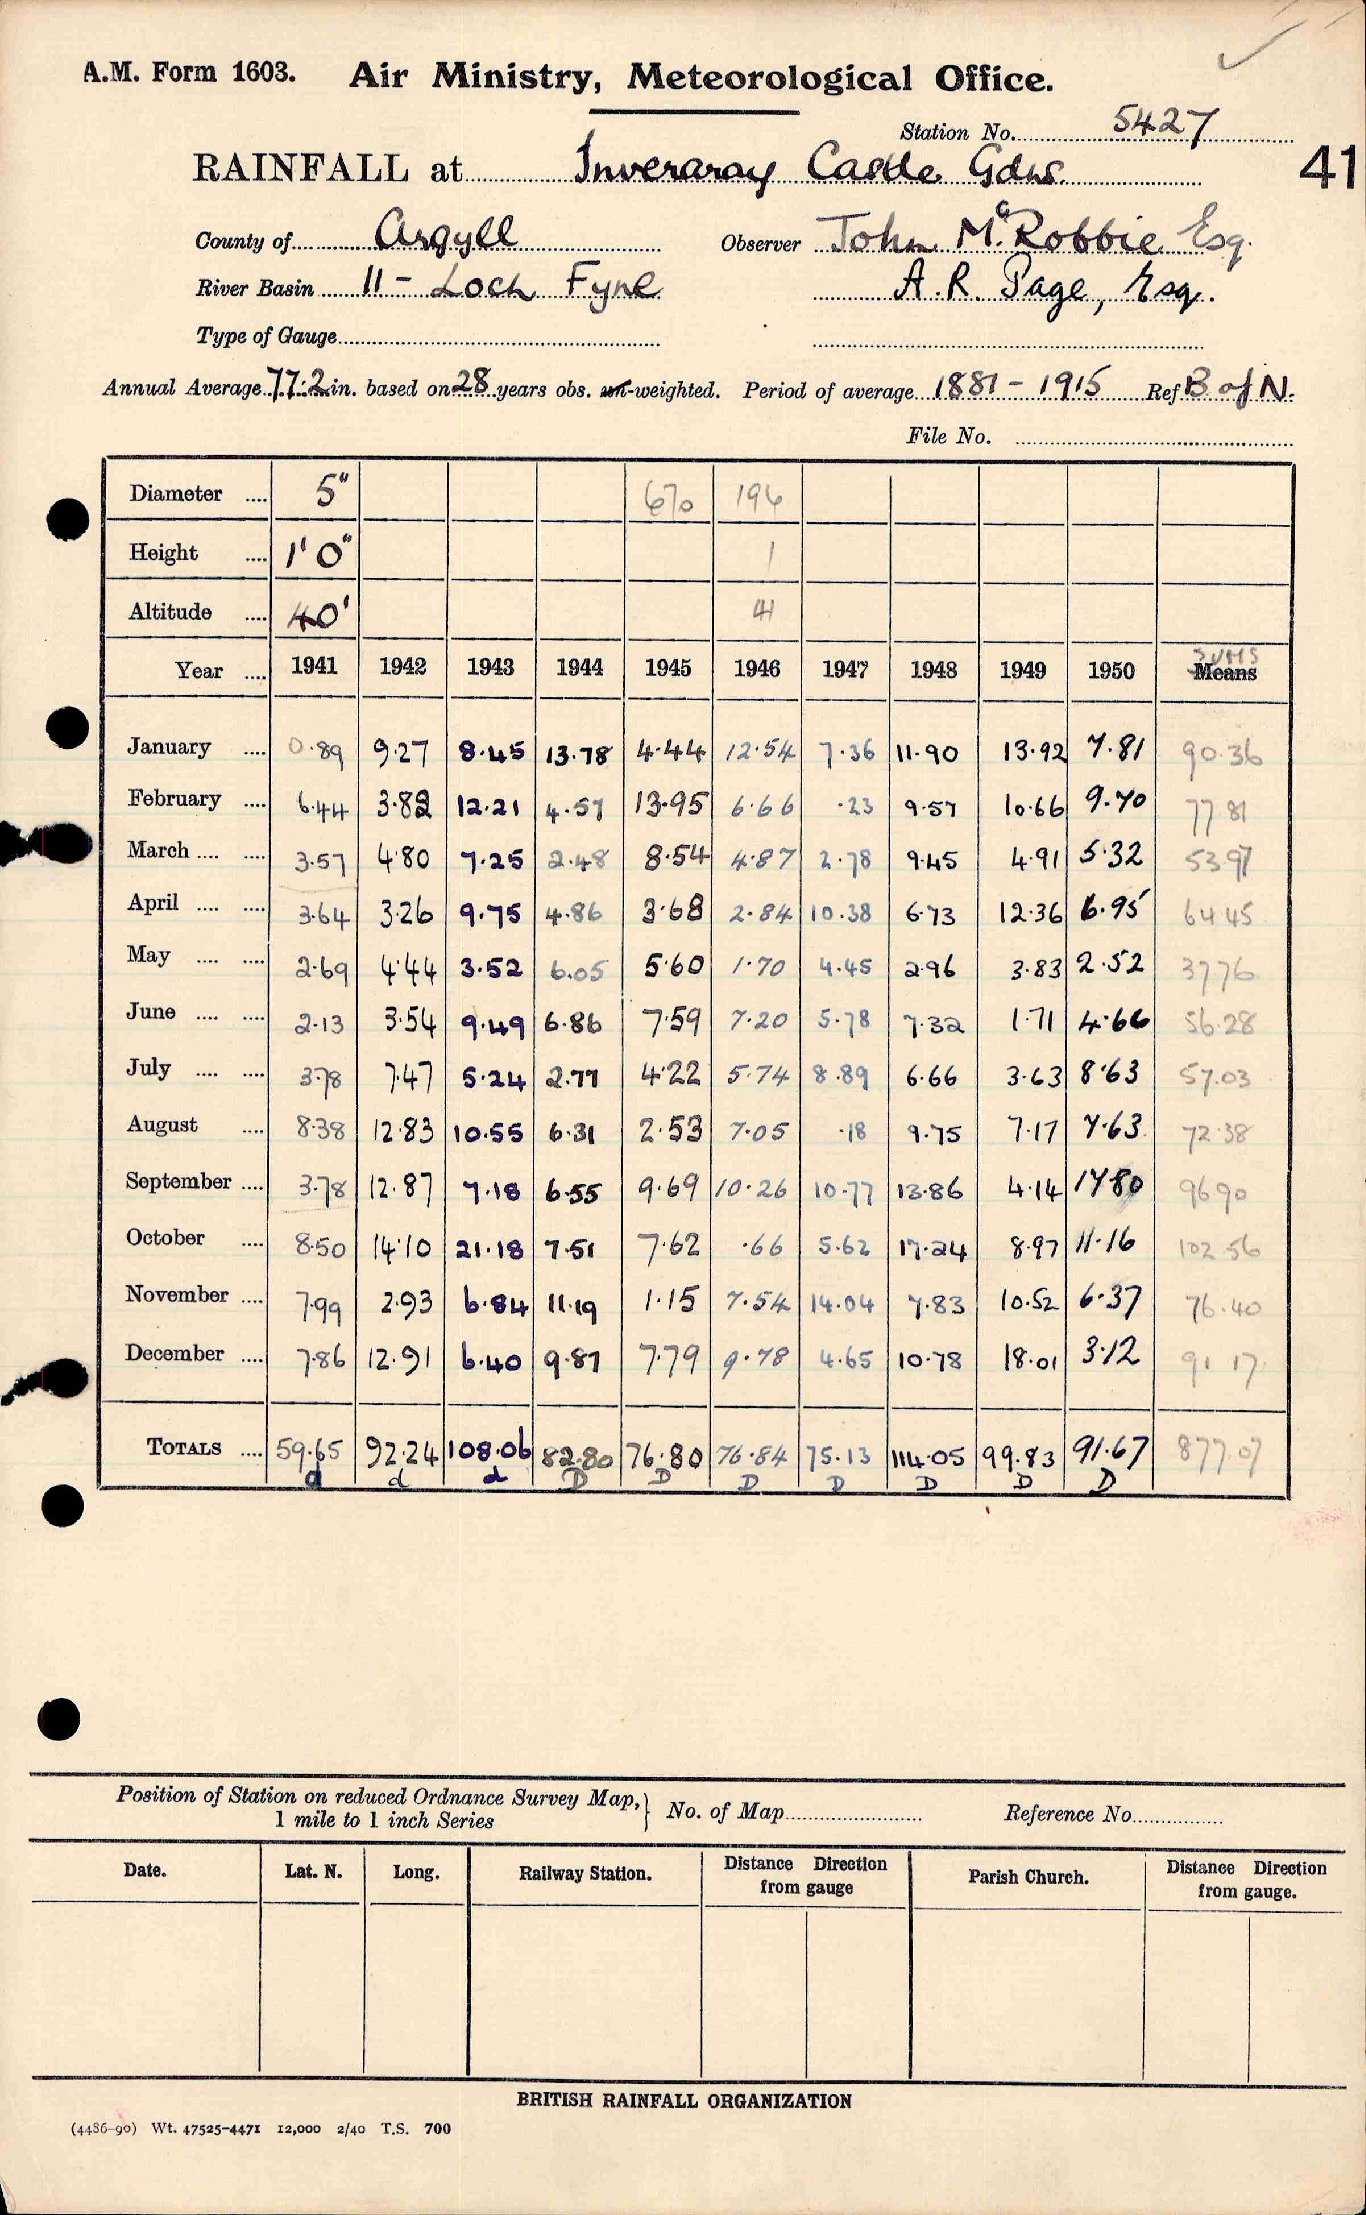 A.M. Form 1603. Air Ministry, Meteorological Office.
Station No. 5427
RAINFALL at Inveraray Castle Gdns. 41
County of Argyll Observer John McRobbie Esq.
River Basin 11 - Loch Fyne A. R. Page, Esq.
Type of Gauge
Annual Average 77.2 in. based on 28 years obs. un-weighted. Period of average 1881 - 1915 Ref B of N.
File No.
Diameter .... 5" 670 196
Height .... 1' 0" 1
Altitude .... 40' 41
Year .... 1941 1942 1943 1944 1945 1946 1947 1948 1949 1950 SUMS Means
January .... 0.89 9.27 8.45 13.78 4.44 12.54 7.36 11.90 13.92 7.81 90.36
February .... 6.44 3.82 12.21 4.57 13.95 6.66 .23 9.57 10.66 9.70 77.81
March .... .... 3.57 4.80 7.25 2.48 8.54 4.87 2.78 9.45 4.91 5.32 53.97
April .... .... 3.64 3.26 9.75 4.86 3.68 2.84 10.38 6.73 12.36 6.95 64.45
May .... .... 2.69 4.44 3.52 6.05 5.60 1.70 4.45 2.96 3.83 2.52 37.76
June .... .... 2.13 3.54 9.49 6.86 7.59 7.20 5.78 7.32 1.71 4.66 56.28
July .... .... 3.78 7.47 5.24 2.77 4.22 5.74 8.89 6.66 3.63 8.63 57.03
August .... 8.38 12.83 10.55 6.31 2.53 7.05 .18 9.75 7.17 7.63 72.38
September .... 3.78 12.87 7.18 6.55 9.69 10.26 10.77 13.86 4.14 17.80 96.90
October .... 8.50 14.10 21.18 7.51 7.62 .66 5.62 17.24 8.97 11.16 102.56
November .... 7.99 2.93 6.84 11.19 1.15 7.54 14.04 7.83 10.52 6.37 76.40
December .... 7.86 12.91 6.40 9.87 7.79 9.78 4.65 10.78 18.01 3.12 91.17
TOTALS .... 59.65 92.24 108.06 82.80 76.80 76.84 75.13 114.05 99.83 91.67 877.07
d d d D D D D D D D
Position of Station on reduced Ordnance Survey Map,} No. of Map Reference No.
1 mile to 1 inch Series
Date. Lat. N. Long. Railway Station. Distance Direction from gauge Parish Church. Distance Direction from gauge.
BRITISH RAINFALL ORGANIZATION
(4486-90) Wt. 47525-4471 12,000 2/40 T.S. 700